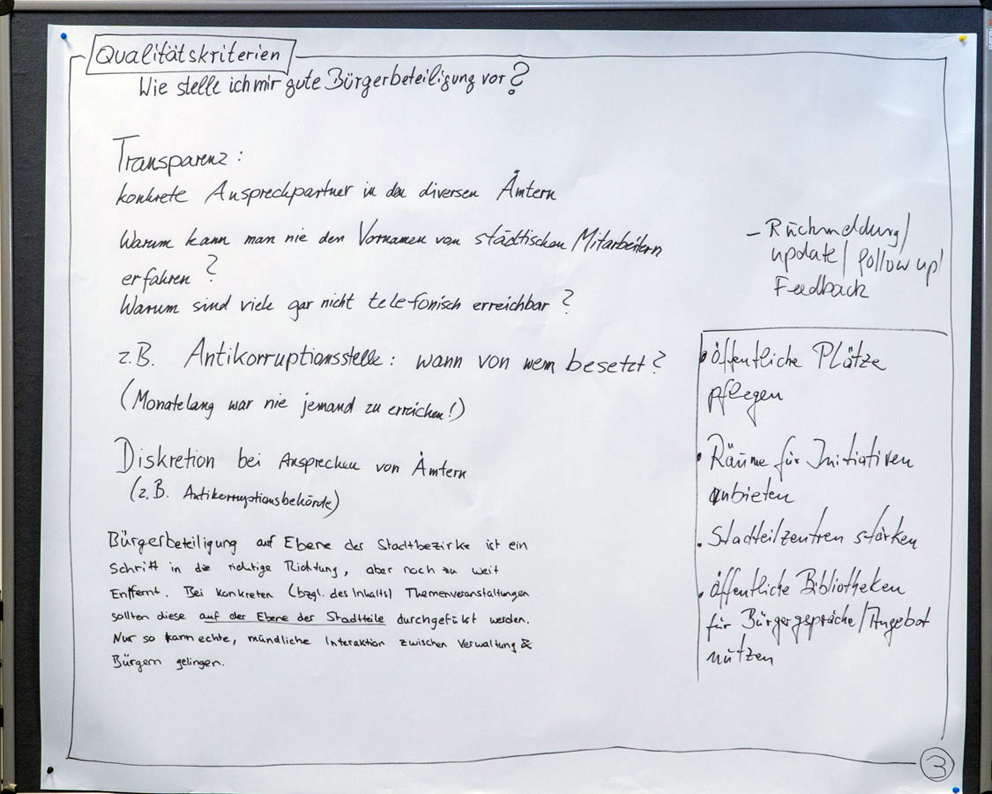 Qualitätskriterien
Wie stelle ich mir gute Bürgerbeteiligung vor?
Transparenz:
konkrete Ansprechpartner in den diversen Ämtern
Warum kann man nie den Vornamen von städtischen Mitarbeitern
erfahren?
Warum sind viele gar nicht telefonisch erreichbar?
z.B. Antikorruptionsstelle: wann von wem besetzt?
(Monatelang war nie jemand zu erreichen!)
Diskretion bei Ansprechen von Ämtern
(z.B. Antikorruptionsbehörde)
Bürgerbeteiligung auf Ebene der Stadtbezirke ist ein
Schritt in die richtige Richtung, aber noch zu weit
Entfernt. Bei konkreten (bzgl. des Inhalts) Themenveranstaltungen
sollten diese auf der Ebene der Stadtteile durchgeführt werden.
Nur so kann echte, mündliche Interaktion zwischen Verwaltung &
Bürgern gelingen.
- Rückmeldung/
update/follow up/
Feedback
• öffentliche Plätze
pflegen
• Räume für Initiativen
anbieten
• Stadteilzentren stärken
• öffentliche Bibliotheken
für Bürgergespräche/Angebot
nutzen
3